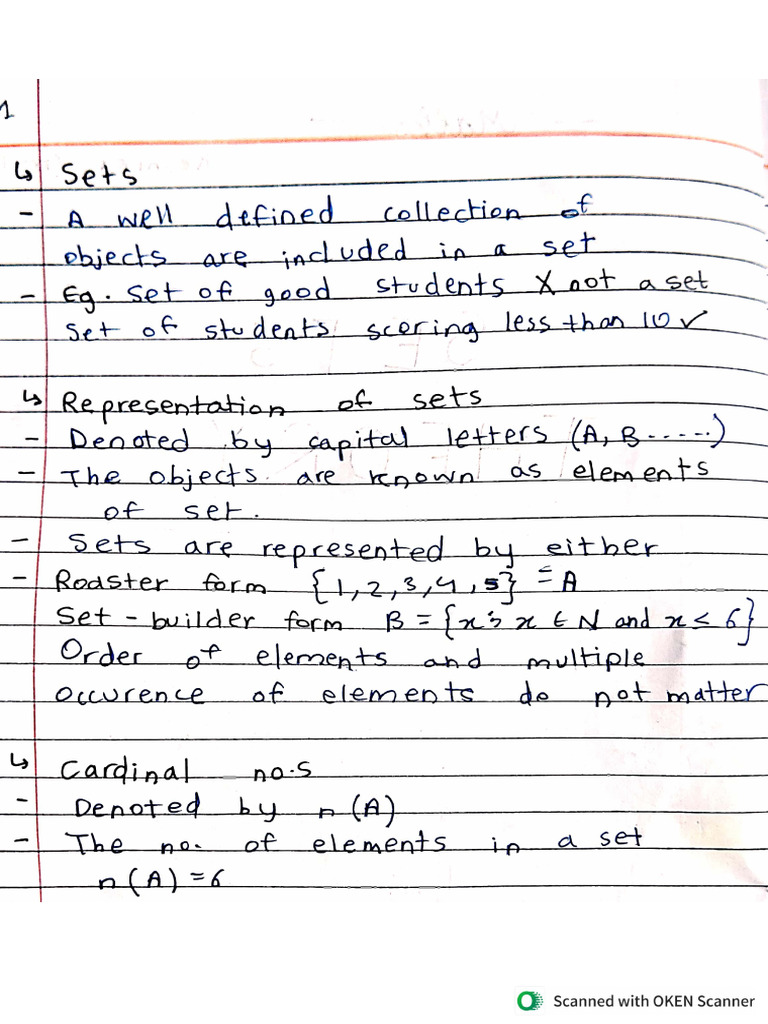 1
↳ Sets
- A well defined collection of
objects are included in a set
- Eg. Set of good students X not a set
Set of students scoring less than 10 ✓
↳ Representation of sets
- Denoted by capital letters (A, B.....)
- The objects are known as elements
of set.
- Sets are represented by either
- Roaster form {1,2,3,4,5} = A
Set-builder form B = {x : x ∈ N and x ≤ 6}
Order of elements and multiple
occurence of elements do not matter
↳ Cardinal no.s
- Denoted by n(A)
- The no. of elements in a set
n(A) = 6
Scanned with OKEN Scanner